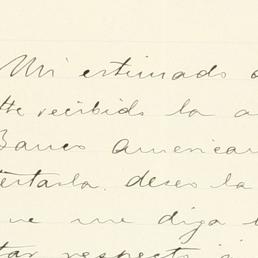 Mi estimado
He recibido la a
Banco American
testarla. deseo la
que me diga
tar respecti